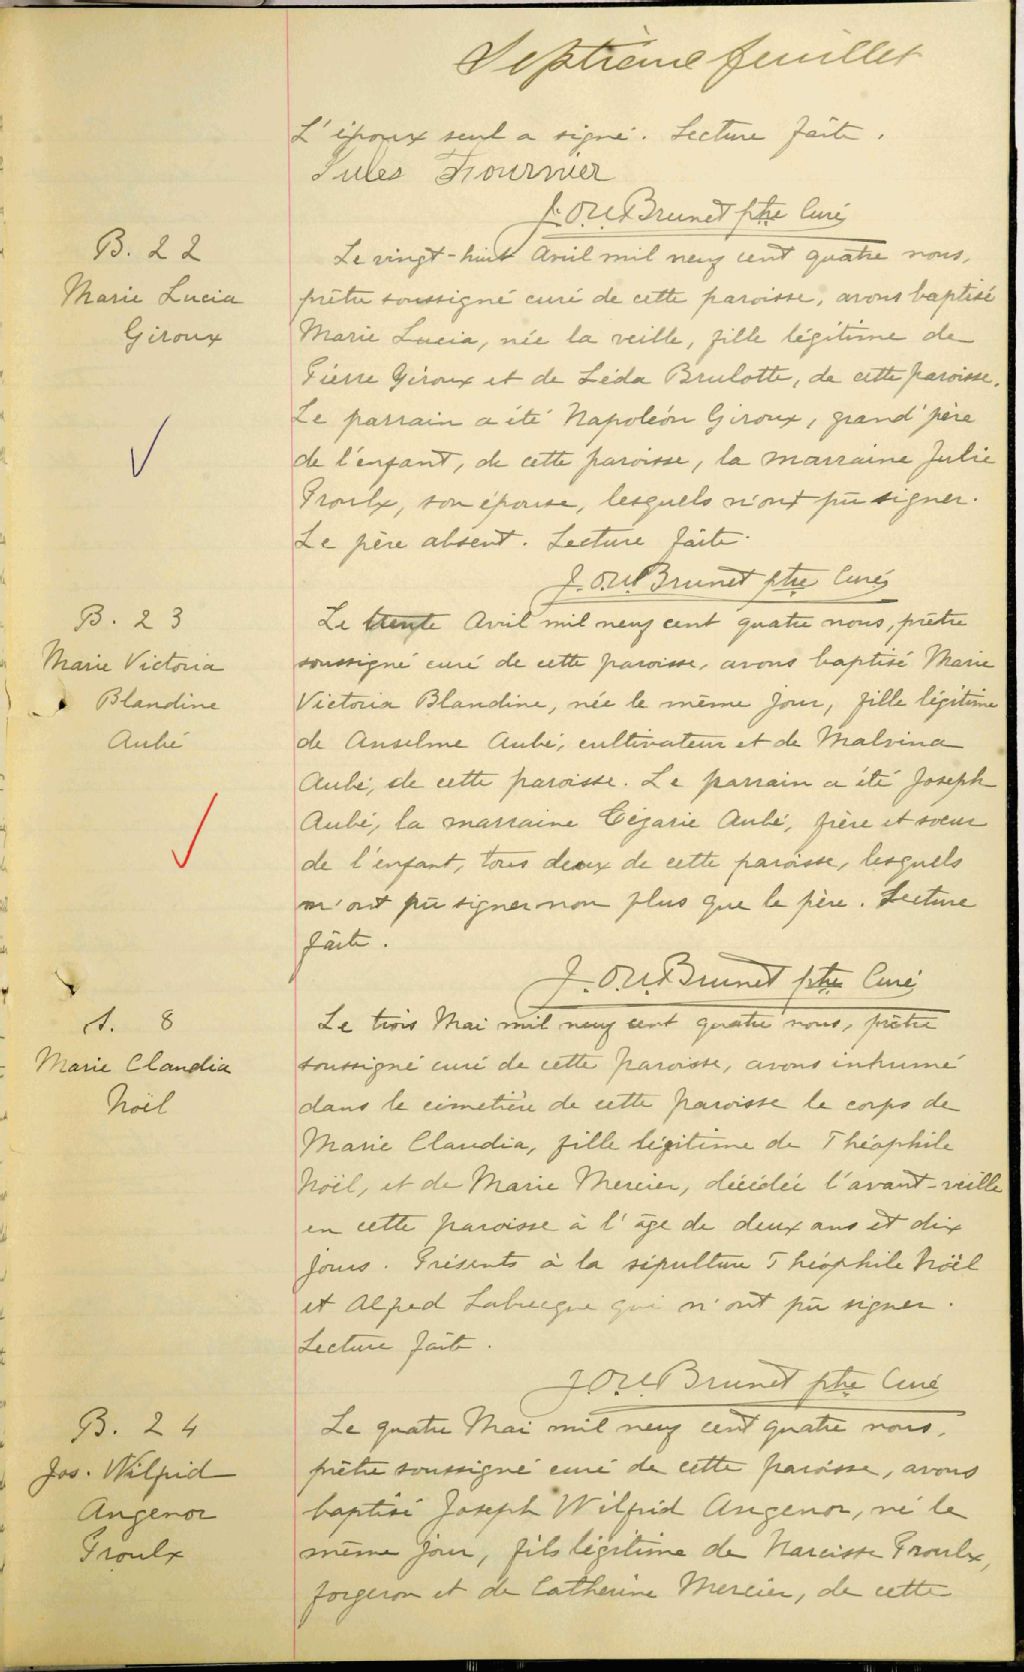 Septième feuillet
L'époux seul a signé. Lecture faite.
Jules Fournier
J. O. U. Brunet ptre Curé
B. 22
Marie Lucia
Giroux
Le vingt-huit Avril mil neuf cent quatre nous,
prêtre soussigné curé de cette paroisse, avons baptisé
Marie Lucia, née la veille, fille légitime de
Pierre Giroux et de Léda Brulotte, de cette paroisse.
Le parrain a été Napoléon Giroux, grand'père
de l'enfant, de cette paroisse, la marraine Julie
Proulx, son épouse, lesquels n'ont pu signer.
Le père absent. Lecture faite.
J. O. U. Brunet ptre Curé
B. 23
Marie Victoria
Blandine
Aubé
Le trente Avril mil neuf cent quatre nous, prêtre
soussigné curé de cette paroisse, avons baptisé Marie
Victoria Blandine, née le même jour, fille légitime
de Anselme Aubé, cultivateur et de Malvina
Aubé, de cette paroisse. Le parrain a été Joseph
Aubé, la marraine Cézarie Aubé, frère et soeur
de l'enfant, tous deux de cette paroisse, lesquels
n'ont pu signer non plus que le père. Lecture
faite.
J. O. U. Brunet ptre Curé
S. 8
Marie Claudia
Noël
Le trois Mai mil neuf cent quatre nous, prêtre
soussigné curé de cette paroisse, avons inhumé
dans le cimetière de cette paroisse le corps de
Marie Claudia, fille légitime de Théophile
Noël, et de Marie Mercier, décédée l'avant-veille
en cette paroisse à l'âge de deux ans et dix
jours. Présents à la sépulture Théophile Noël
et Alfred Labrecque qui n'ont pu signer.
Lecture faite.
J. O. U. Brunet ptre Curé
B. 24
Jos. Wilfrid
Angenor
Proulx
Le quatre Mai mil neuf cent quatre nous,
prêtre soussigné curé de cette paroisse, avons
baptisé Joseph Wilfrid Angenor, né le
même jour, fils légitime de Narcisse Proulx,
forgeron et de Catherine Mercier, de cette